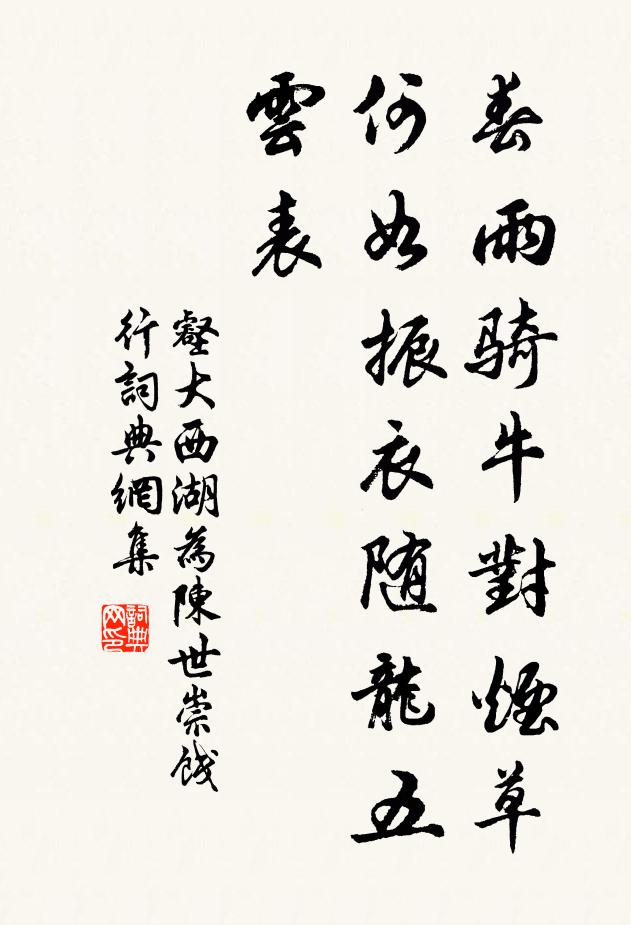 春雨騎牛對煙草
何如振衣隨龍五
雲表
壑大西湖為陳世崇餞
行詞典網集
詞典
网印